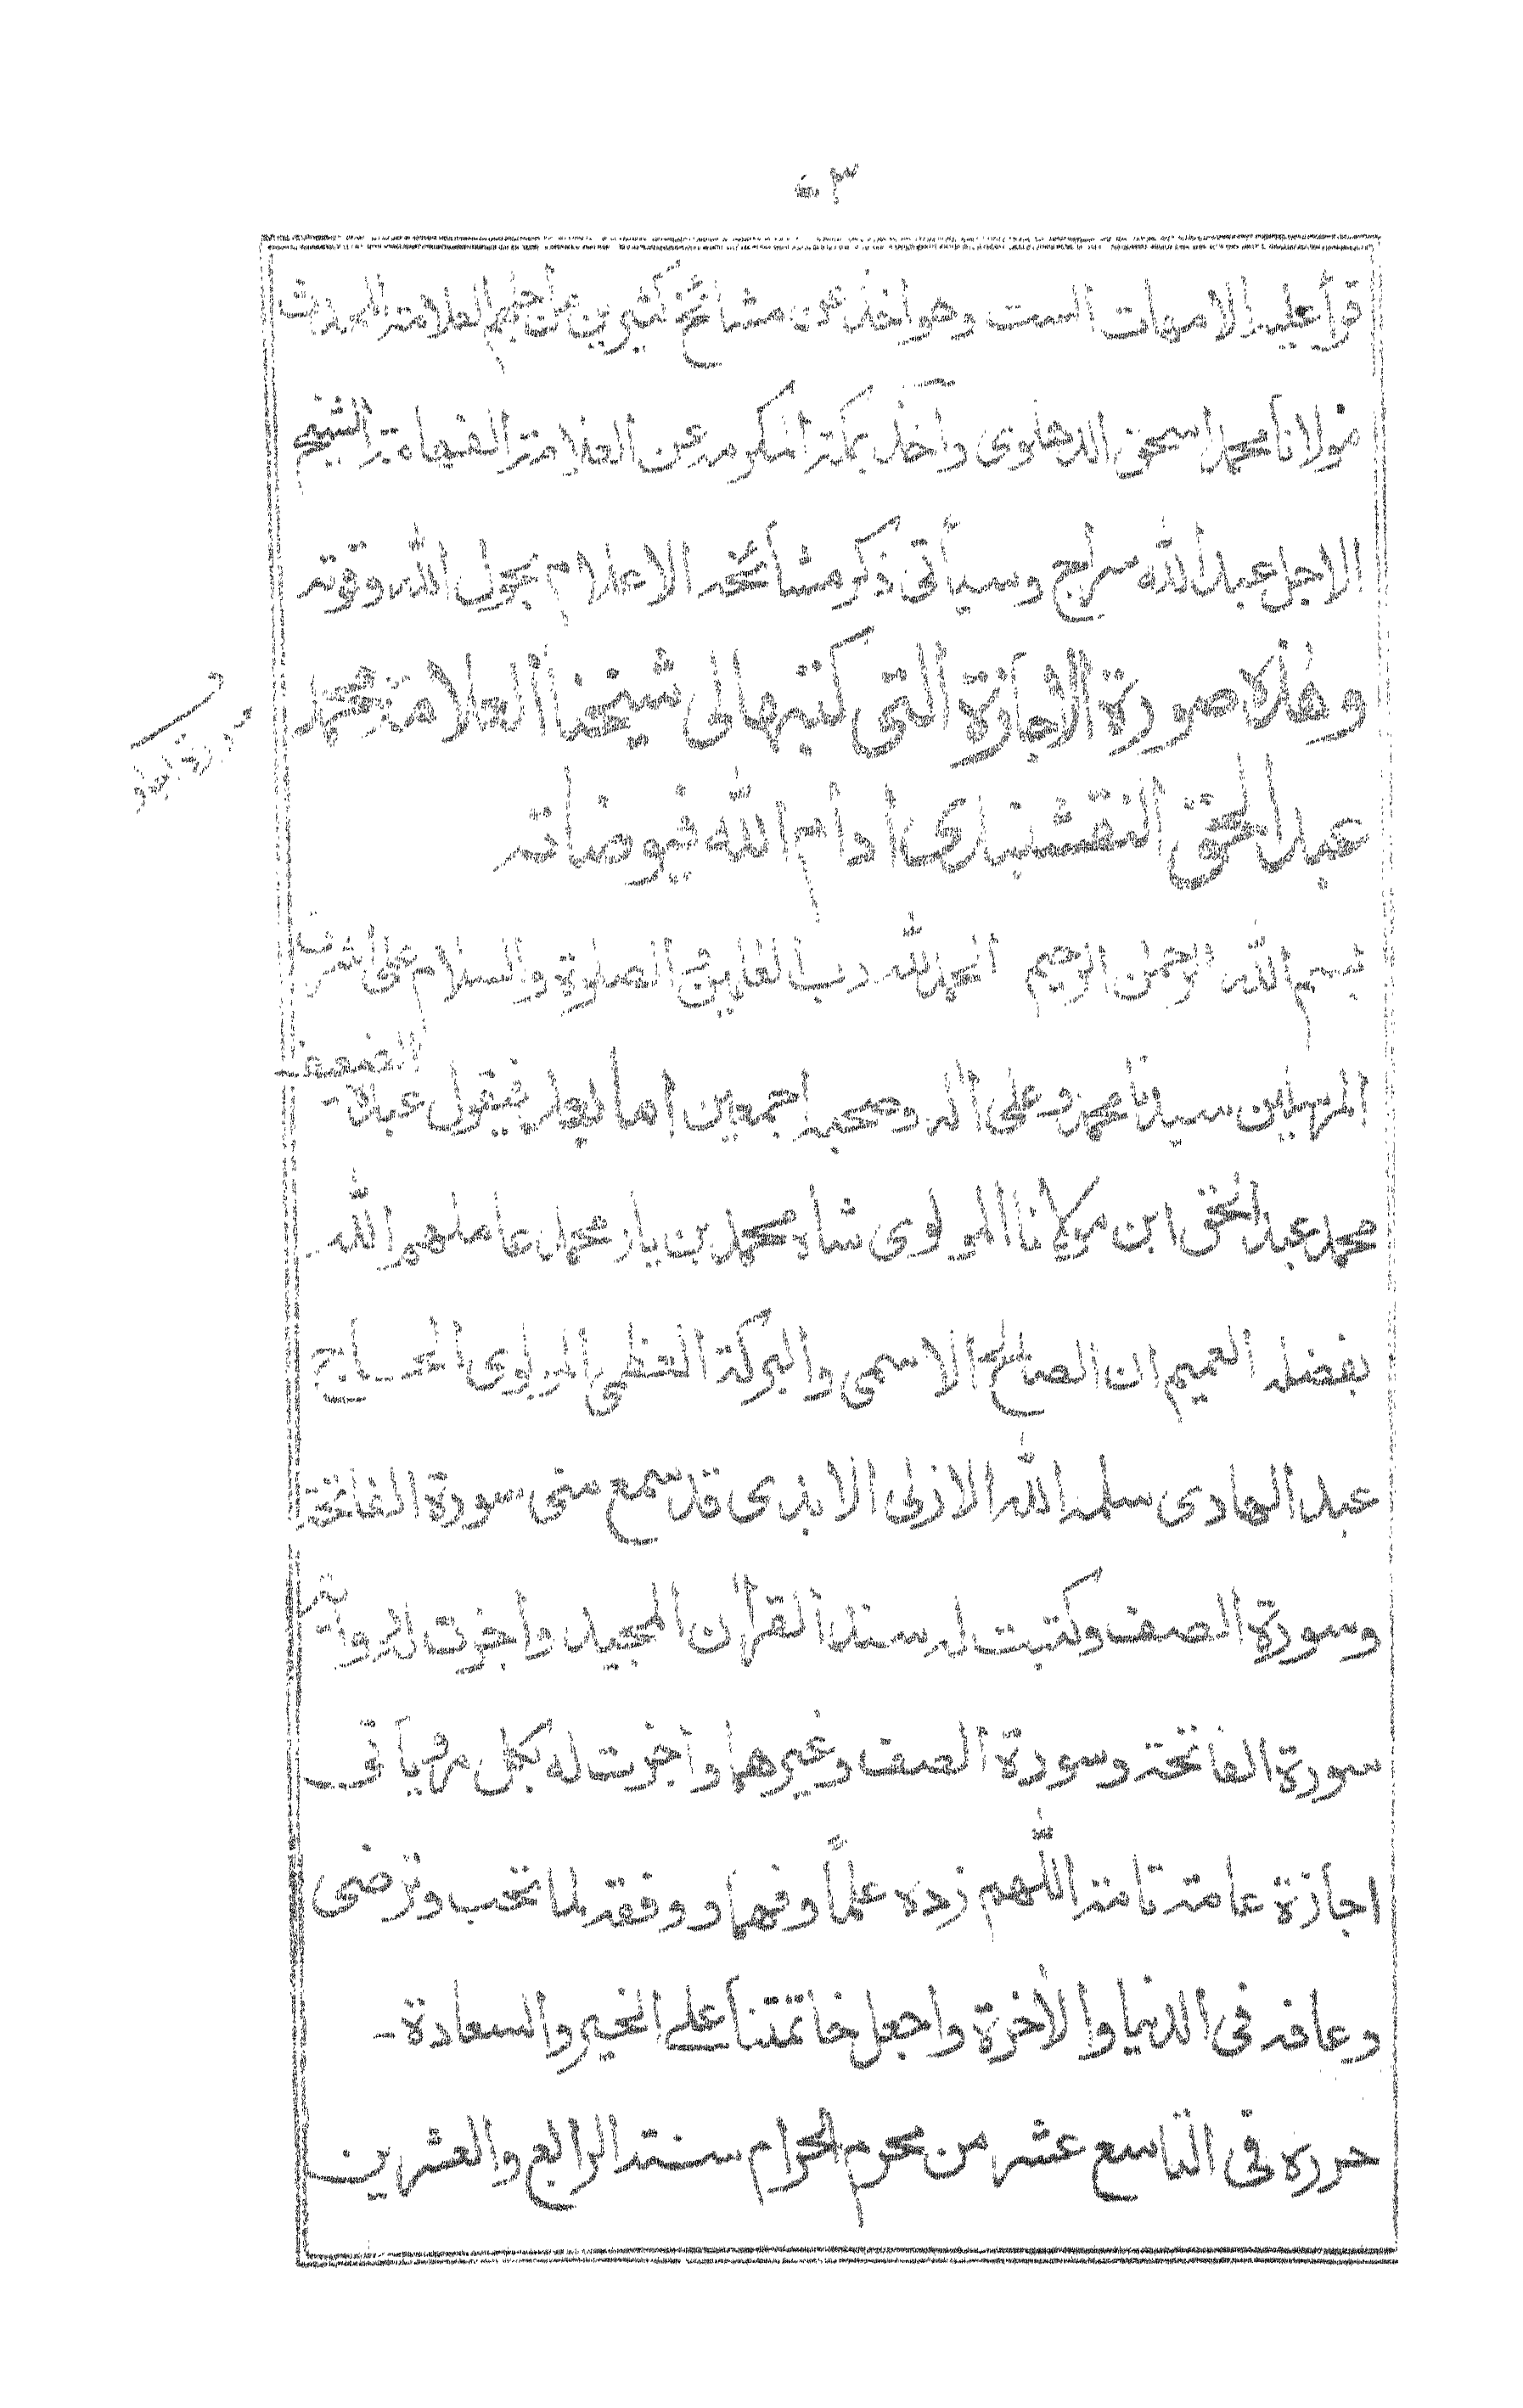 ٣٠
قرأ عليه الامهات الست وهو اخذ عن مشائخ كثيرين من اجلهم العلامة المحدث
مولانا محمد اسحق الدهلوى وآخذ بمكة المكرمه عن العلامة الفهامة الشيخ
الاجل عبد الله سراج وسيأتى ذكر مشائخه الاعلام بحول الله وقوته
وهذه صورة الاجازة التى كتبها لى شيخنا العلامة محمد
عبد الحق النقشبندى ادام الله فيوضاته
بسم الله الرحمن الرحيم الحمد لله رب العلمين والصلوة والسلام على اشرف
المرسلين سيدنا محمد وعلى اله وصحبه اجمعين اما بعد فيقول عبده الضعيف
محمد عبد الحق ابن مولانا المولوى شاه محمد بن يار محمد عاملهم الله
بفضله العميم ان الصالح الاسمى والبركة العظمى المولوى الحاج
عبد الهادى سلمه الله الازلى الابدى قد سمع منى سورة الفاتحة
وسورة الصف وكتبت له سند القرآن المجيد واجزت له رواية
سورة الفاتحة وسورة الصف وغيرهما واجزت له بكل مروياتى
اجازة عامة تامة اللهم زده علماً وفهما ووفقه لما تحب وترضى
وعافه فى الدنيا والاخرة واجعل خاتمتنا على الخير والسعادة
حرره فى التاسع عشر من محرم الحرام سنة الرابع والعشرين